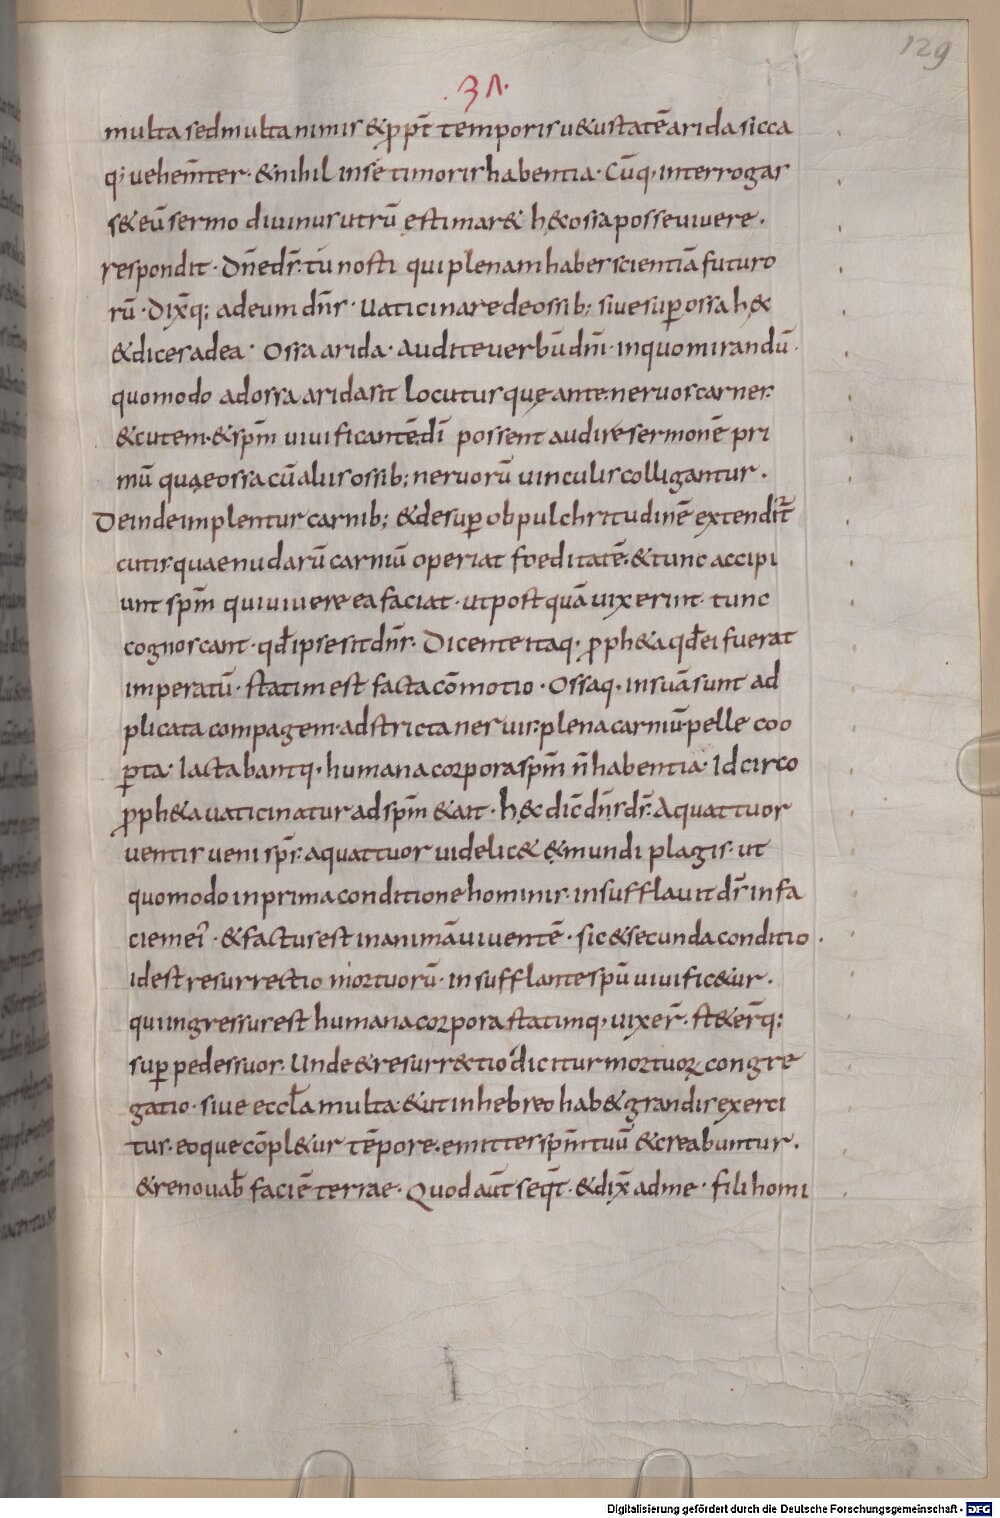 129
3Λ.
multa sed multa nimis & ꝓpt̄ temporis u&ustatē arida sicca
q; uehem̄ter · & nihil in se timoris habentia · Cūq; interrogas
s& eū sermo diuinus utrū ęstimar& hęc ossa posse uiuere ·
respondit · Dn̄e dr̄ · tu nosti qui plenam habes scientiā futuro
rū · Dix̄q; ad eum dn̄s · Uaticinare de ossib; siue suꝑ ossa hęc
& dices ad ea · Ossa arida · audite uerbū dn̄i · in quo mirandū ·
quomodo ad ossa arida sit locutus quę ante neruos carnes
& cutem · & sp̄m uiuificantē dī possent audire sermonē pri
mū quae ossa cū aliis ossib; neruorū uinculis colligantur ·
Deinde implentur carnib; & desuꝑ ob pulchritudinē extendit̄
cutis · quae nudarū carniū operiat foeditatē · & tunc accipi
unt sp̄m qui uiuere ea faciat · ut postquā uixerint · tunc
cognoscant · qd̄ ipse sit dn̄s · Dicente itaq; ꝓph&a qd̄ ei fuerat
imperatū · statim est facta cōmotio · Ossaq; in suā sunt ad
plicata compagem · adstricta neruis · plena carniū · pelle coo
ꝑta · Iactabantq; humana corpora sp̄m n̄ habentia · Idcirco
ꝓph&a uaticinatur ad sp̄m & ait · hęc dic̄ dn̄s dr̄ · A quattuor
uentis ueni sp̄s · a quattuor uidelic& & mundi plagis · ut
quomodo in prima conditione hominis · insufflauit dr̄ in fa
ciem eī · & factus est in animā uiuentē · sic & secunda conditio ·
id est resurrectio mortuorū · insufflante sp̄u uiuific&ur ·
qui ingressus est humana corpora statimq; uixer̄ · st&er̄q;
suꝑ pedes suos · Unde & resurr&tio dicitur mortuoꝝ congre
gatio · siue eccl̄a multa · & ut in hebreo hab& grandis exerci
tus · eo quę cōpl&ur tēpore · emittes sp̄m tuū & creabuntur ·
& renouab̄ faciē terrae · Quod aūt seq̄t · & dix̄ ad me · fili homi
Digitalisierung gefördert durch die Deutsche Forschungsgemeinschaft - DFG